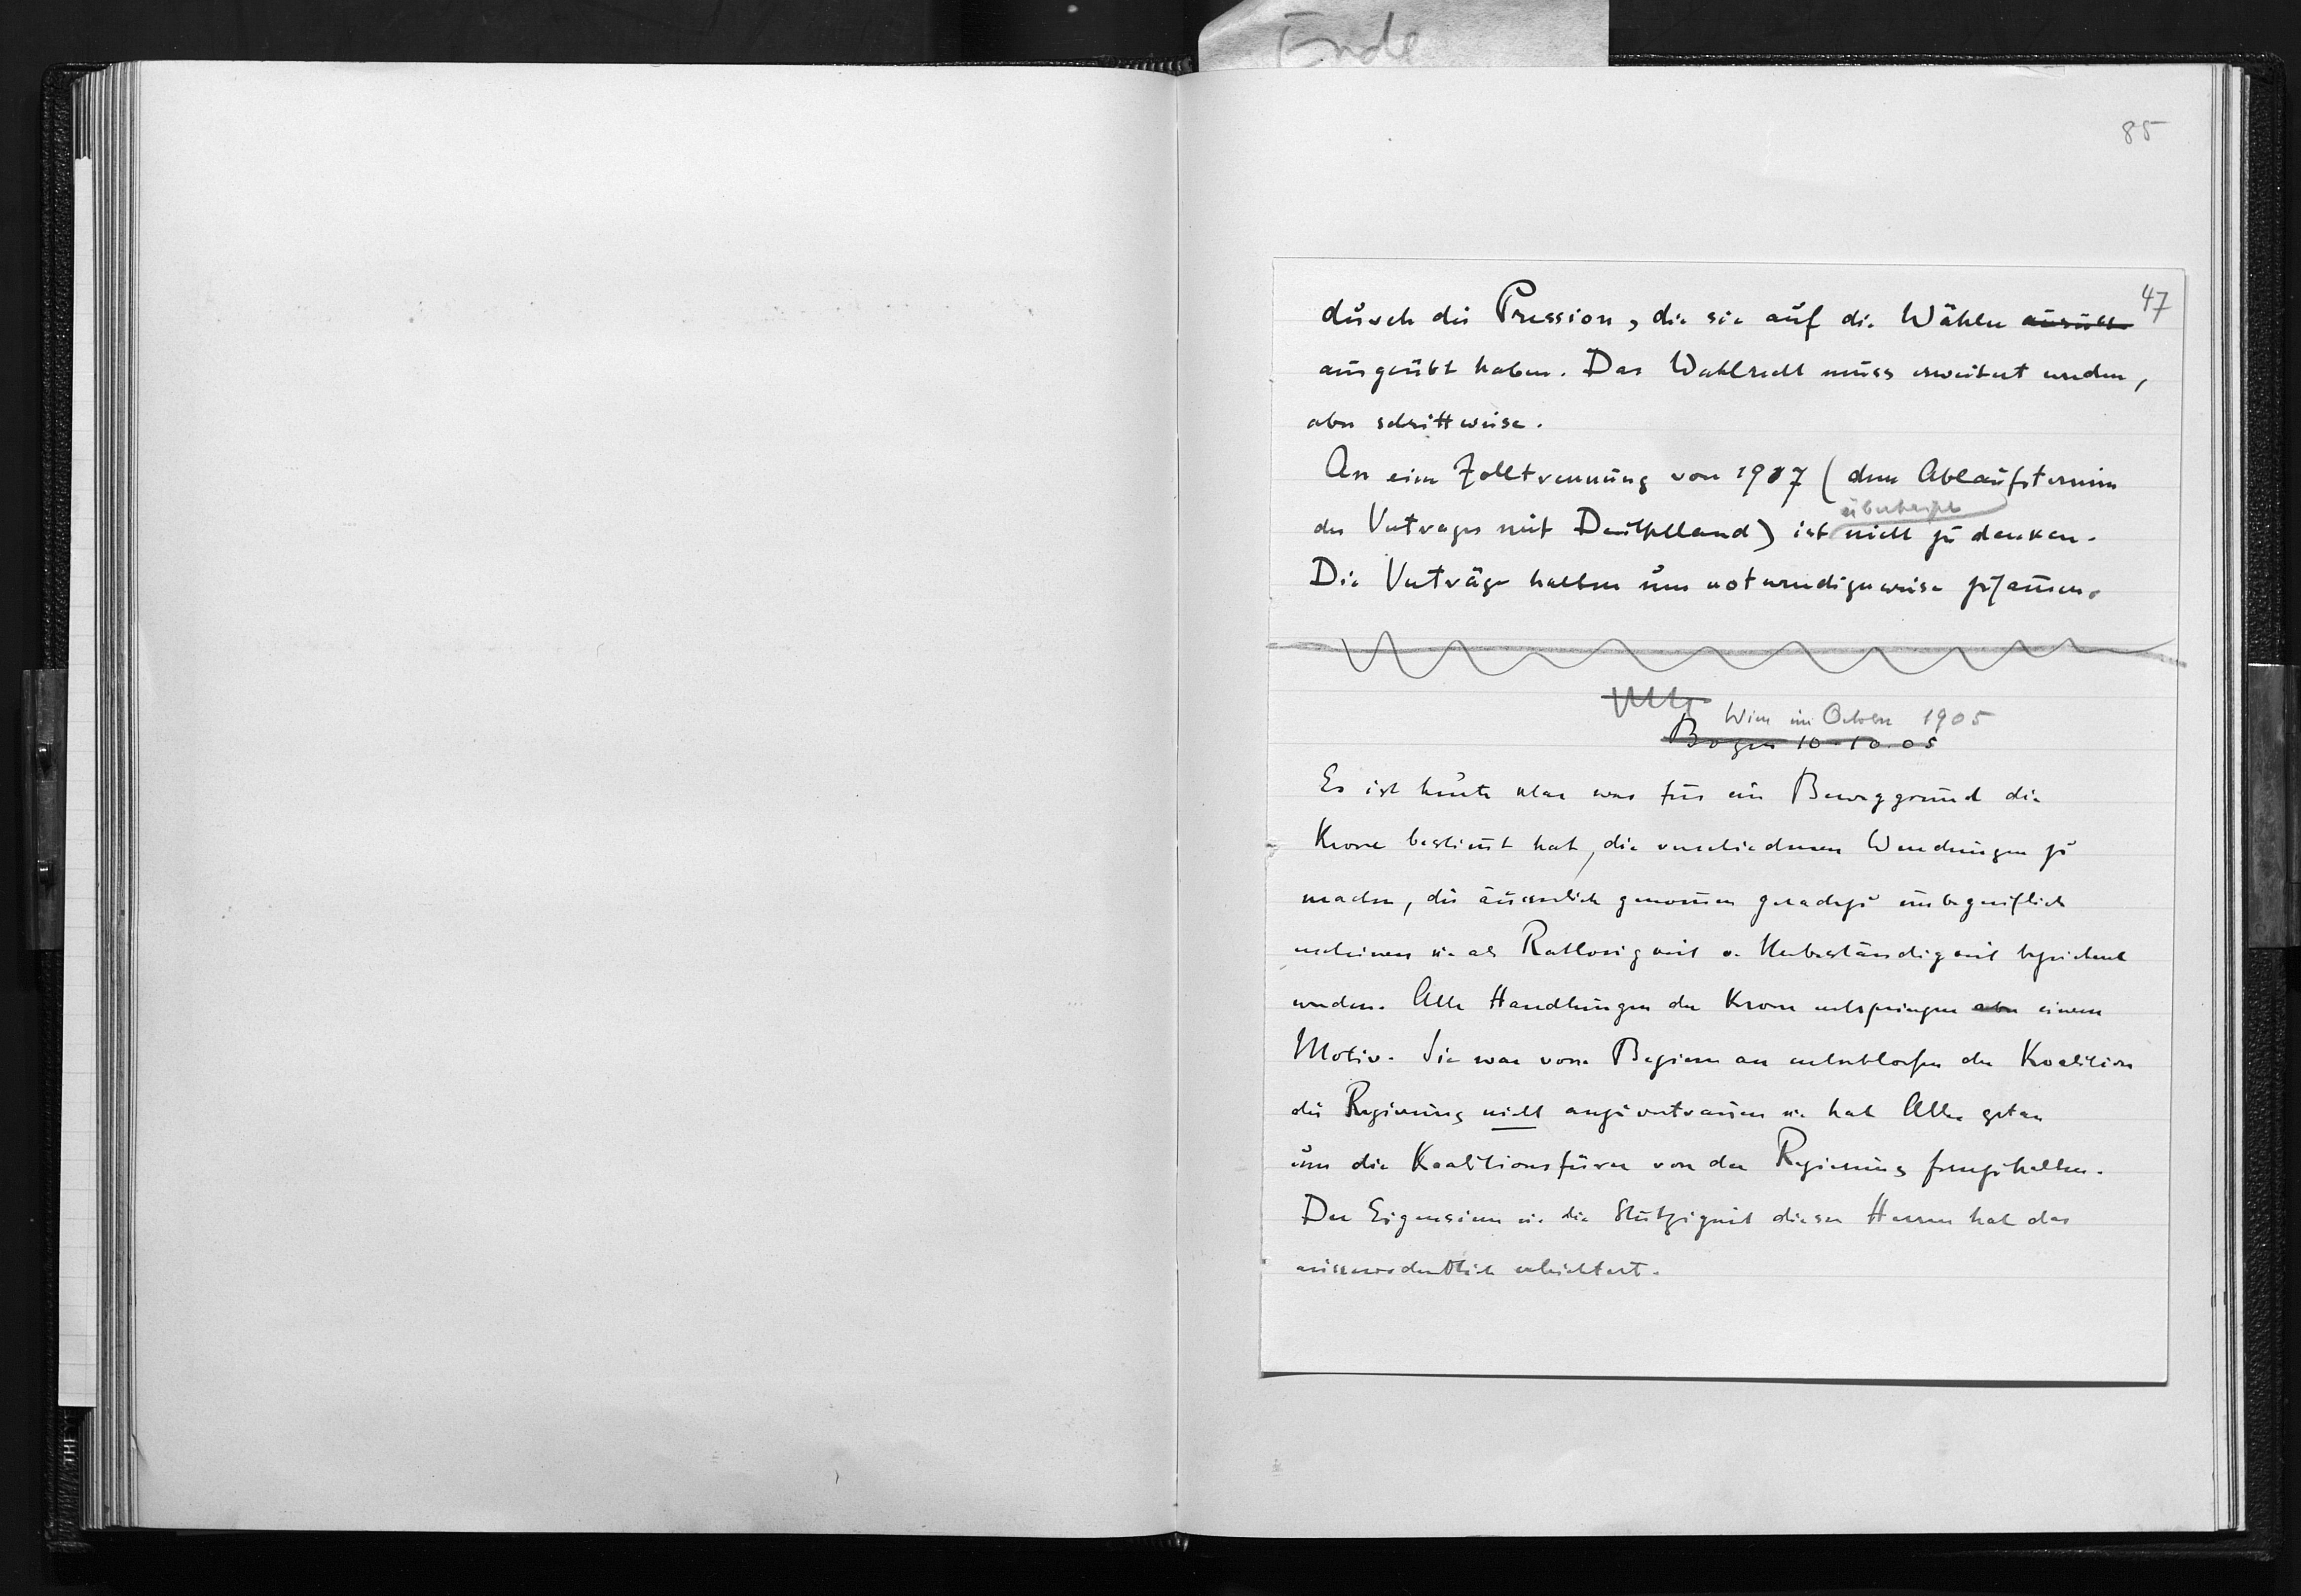 Ende
85
47
durch die Pression, die sie auf die Wähler
ausgeübt haben. Das Wahlrecht muss erweitert werden,
aber schrittweise.
An eine Zolltrennung vor 1917 (dem Ablaufstermin
überhaupt
des Vertrages mit Deutschland) ist nicht zu denken.
Die Verträge halten uns notwendigerweise zusammen.
Wien im October 1905
Bozen 10-10.05
Es ist heute klar was für ein Beweggrund die
Krone bestimt hat, die verschiedenen Wendungen zu
machen, die äusserlich genommen geradezu unbegreiflich
erscheinen u. als Ratlosigkeit o. Unbeständigkeit bezeichnet
werden. Alle Handlungen der Krone entspringen aber einem
Motiv. Sie war vom Beginn an entschlossen der Koalition
die Regierung nicht anzuvertrauen u. hat Alles getan
um die Koalitionsfürer von der Regierung fernzuhalten.
Der Eigensinn u. die Stützigkeit dieser Herren hat das
ausserordentlich erleichtert.